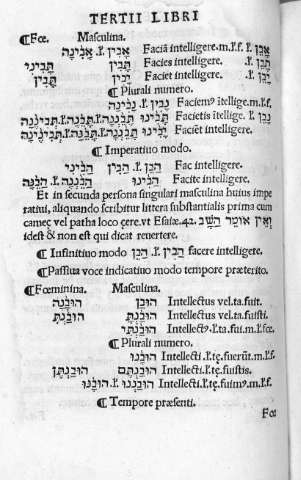 TERTII LIBRI
¶Fœ. Masculina.
אָבֵן .ľ אָבִין .ľ אָבִינָה Faciā intelligere.m.ľ.f.
תָּבֵן .ľ תָּבִין תָּבִינִי Facies intelligere.
יָבֵן .ľ יָבִין תָּבִין Faciet intelligere.
¶Plurali numero.
נָבֵן .ľ נָבִין .ľ נָבִינָה Faciemꝰ ītellige.m.ľ.f.
Facietis ītellige.
Faciēt intelligere.
¶Imperatiuo modo.
הָבֵן .ľ הָבִין הָבִינִי Fac intelligere.
הָבִינוּ Facite intelligere.
Et in secunda persona singulari masculina huius impe
ratiui, aliquando scribitur littera substantialis prima cum
cameç vel patha loco çere.vt Esaiæ.42.
וְאֵין אוֹמֵר הָשַׁב
idest & non est qui dicat reuertere.
¶Infinitiuo modo הָבִין .ľ הָבֵן facere intelligere.
¶Passiua voce indicatiuo modo tempore præterito.
¶Fœminina. Masculina.
הוּבַן הוּבְנָה Intellectus vel.ta.fuit.
הוּבַנְתָּ הוּבַנְתְּ Intellectus vel.ta.fuisti.
הוּבַנְתִּי Intellectꝰ.ľ.ta.fui.m.ľ.fœ.
¶Plurali numero.
הוּבְנוּ Intellecti.ľ.tę.fuerūt.m.ľ.f.
הוּבַנְתֶּם הוּבַנְתֶּן Intellecti.ľ.tę.fuistis.
הוּבַנְנוּ .ľ הוּבַנּוּ Intellecti.ľ.tę.fuimꝰ.m.ľ.f.
¶Tempore præsenti.
Fœ